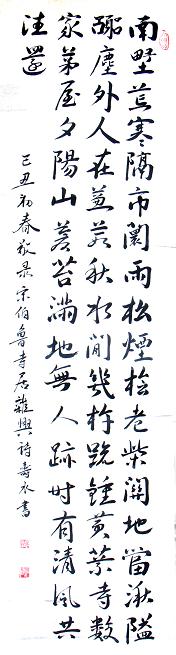 南野荒寒隔市闤雨松煙桧老柴關地當湫隘
囂塵外人在蒹葭秋水間幾杵疏鍾黃葉寺數
家茅屋夕陽山蒼苔滿地無人跡時有清風共
往還
己丑初春敬录宋伯魯寺居雜興詩書